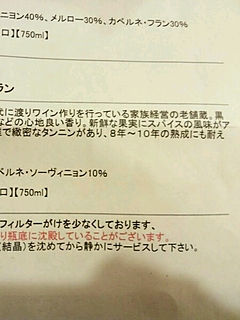 ニヨン40%、メルロー30%、カベルネ・フラン30%
ロ】【750ml】
ラン
代に渡りワイン作りを行っている家族経営の老舗蔵。黒
などの心地良い香り。新鮮な果実にスパイスの風味がア
で緻密なタンニンがあり、8年～10年の熟成にも耐え
ベルネ・ソーヴィニョン10%
ロ】【750ml】
フィルターがけを少なくしております、
り瓶底に沈殿していることがございます。
(結晶)を沈めてから静かにサービスして下さい。